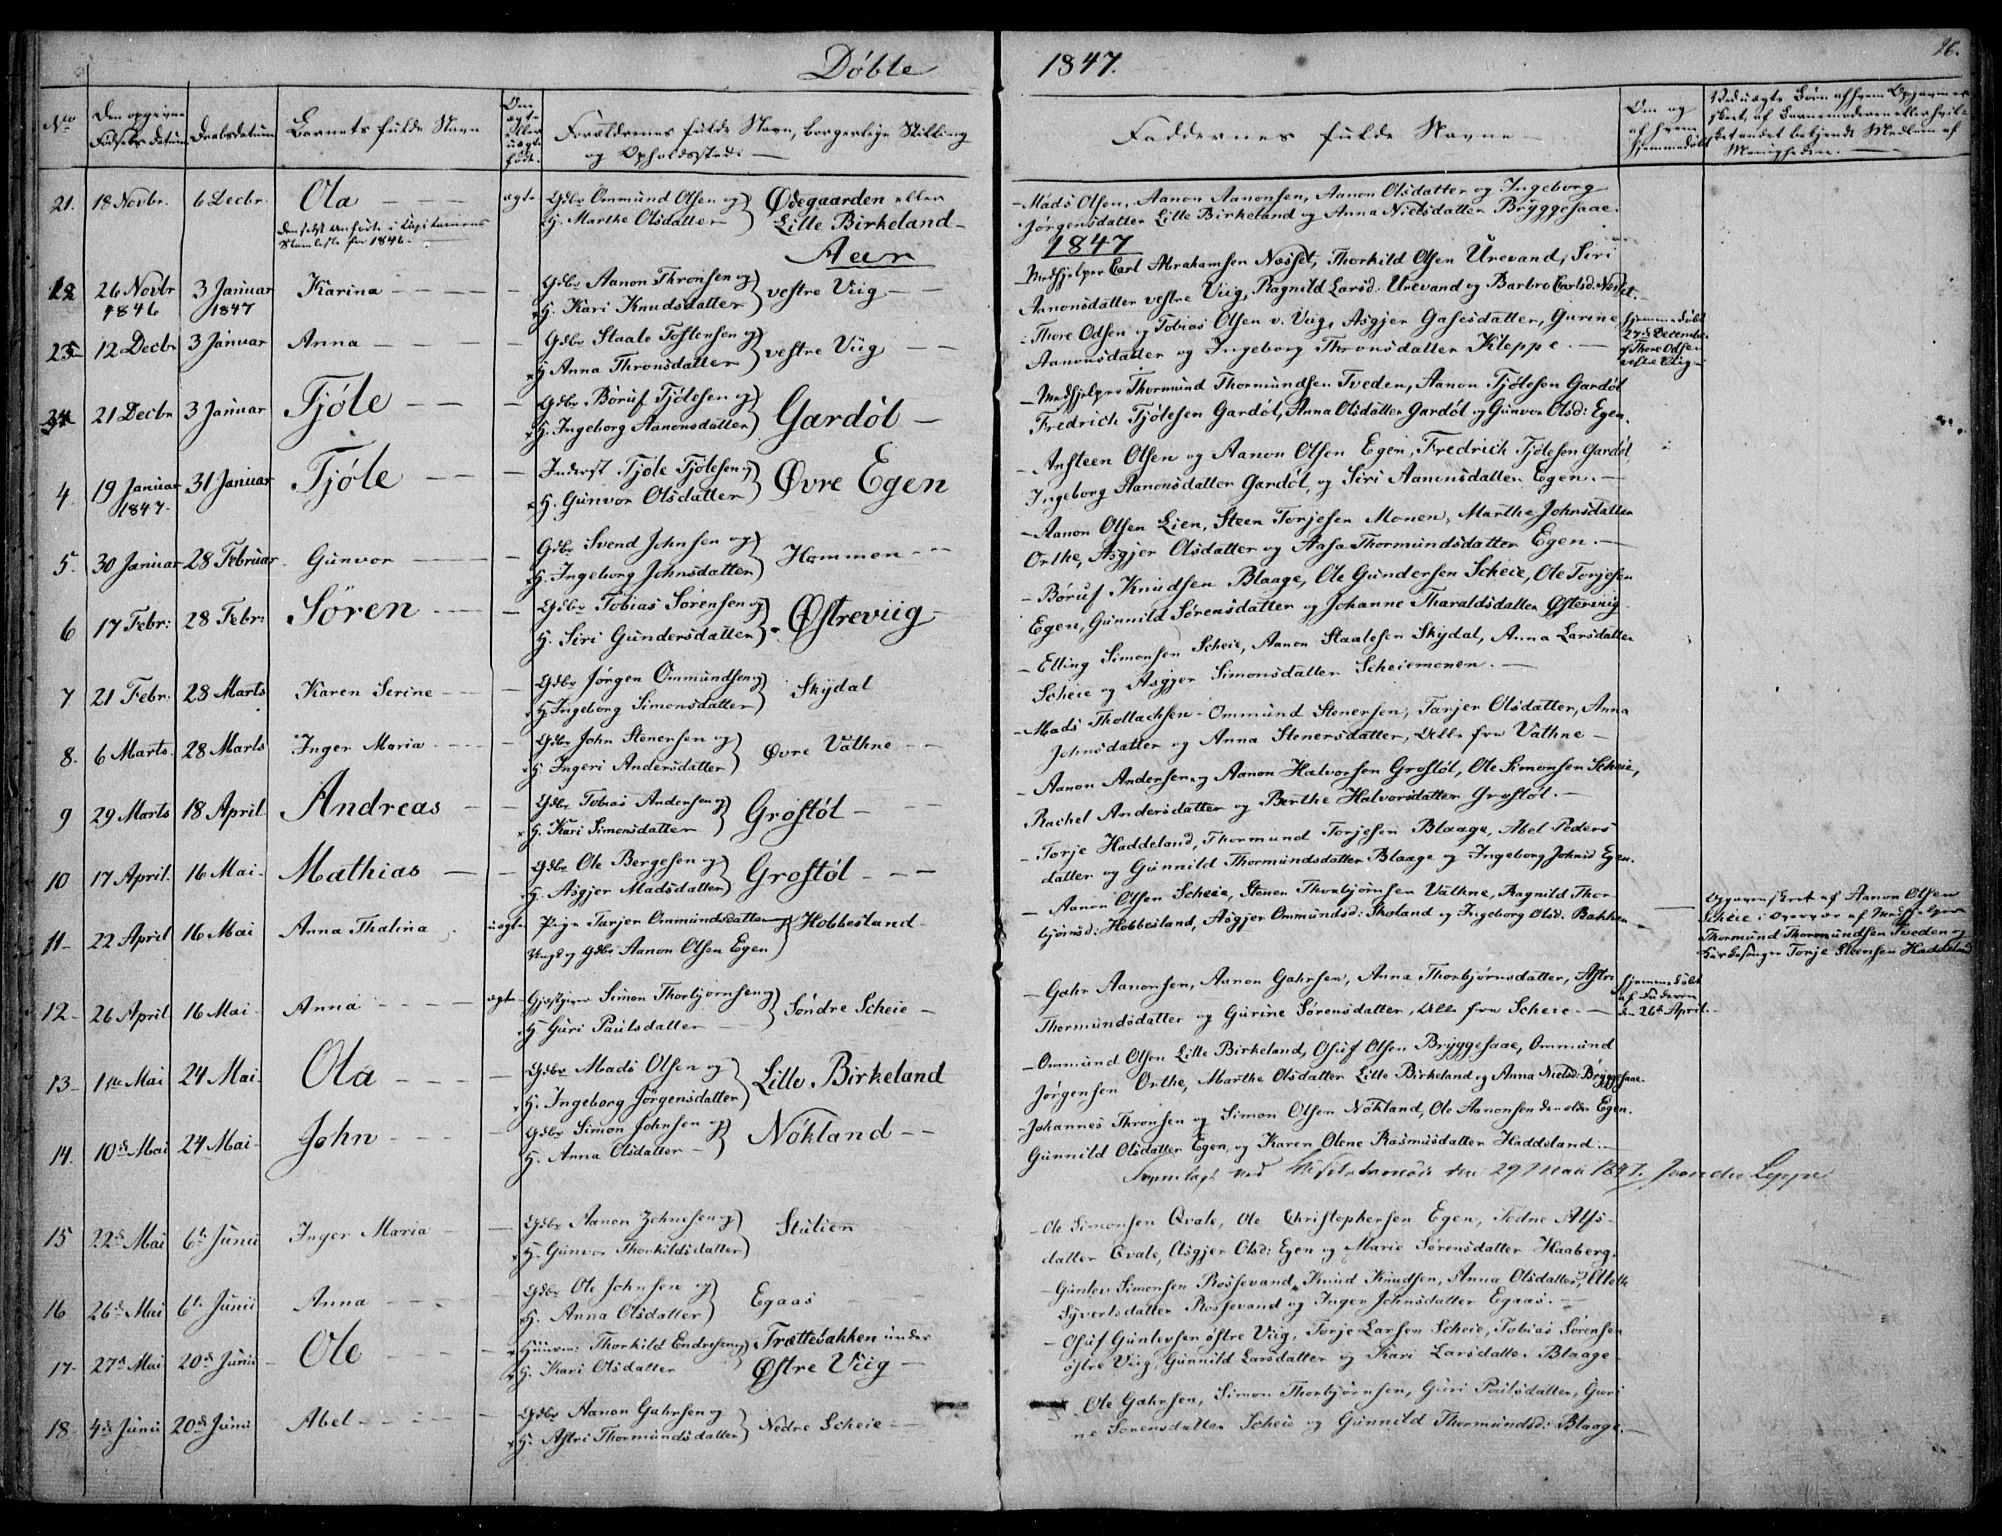 Døbte
1847.
26.
No
Den opgivne Fødsels datum
Daabsdatum
Barnets fulde Navn
Om ægte eller uægte født.
Forældrenes fulde Navn, borgerlige Stilling
og Opholdssted. —
Faddernes fulde Navne —
Om og af hvem hjemmedøbt
21. 18 Novbr. 6 Decbr. Ola — ægte
Gdbr Ommund Olsen og
H. Marthe Olsdatter
Ødegaarden eller
Lille Birkeland —
— Mads Olsen, Aanon Aanonsen, Aanon Olsdatter og Ingeborg
Jørgensdatter Lille Birkeland og Anna Nielsdatter Bryggesaae.
Aar
1847
26 Novbr 1846 3 Januar 1847 Karina —
Gdbr Aanon Thronsen og
H. Kari Knudsdatter
vestre Viig —
Medhjelper Carl Abrahamsen Nosset, Thorkild Olsen Urevand, Siri
Aanonsdatter vestre Viig, Ragnild Larsd. Urevand og Barbro Carlsd. Nosset.
12 Decbr 3 Januar Anna —
Gdbr Staale Tostensen og
H Anna Thronsdatter
vestre Viig —
Thore Odsen og Tobias Olsen v. Viig, Asgjer Gasesdatter, Gurine
Aanonsdatter og Ingeborg Thronsdatter Kleppe. —
hjemmedøbt
27de December
af Thore Odsen
vestre Viig —
21 Decbr 3 Januar Tjøle —
Gdbr Børuf Tjølesen og
H. Ingeborg Aanonsdatter
Gardøl —
— Medhjelper Thormund Thormundsen Tveden, Aanon Tjølesen Gardøl
Fredrich Tjølesen Gardøl, Anna Olsdatter Gardøl og Gunvor Olsd: Egen.
4. 19 Januar 1847. 31 Januar Tjøle —
Inderst Tjøle Tjølesen og
H. Gunvor Olsdatter
Øvre Egen
— Ansteen Olsen og Aanon Olsen Egen, Fredrich Tjølesen Gardøl,
Ingeborg Aanonsdatter Gardøl, og Siri Aanonsdatter Egen. —
5. 30 Januar 28 Februar Gunvor —
Gdbr Svend Johnsen og
H. Ingeborg Johnsdatter
Hommen —
— Aanon Olsen Lien, Steen Torjesen Monen, Marthe Johnsdatter
Orthe, Asgjer Olsdatter og Aasa Thormundsdatter Egen. —
6 17 Febr: 28 Febr: Sören —
Gdbr Tobias Sørensen og
H. Siri Gundersdatter
Østreviig
— Børuf Knudsen Blaage, Ole Gundersen Scheie, Ole Torjesen
Egen, Gunnild Sørensdatter og Johanne Tharaldsdatter Østerviig
7. 21 Febr. 28 Marts Karen Serine —
Gdbr Jørgen Ommundsen og
H Ingeborg Simonsdatter
Skydal
— Elling Simonsen Scheie, Aanon Staalesen Skydal, Anna Larsdatter
Scheie og Asgjer Simonsdatter Scheiemonen. —
8. 6 Marts. 28 Marts Inger Maria —
Gdbr John Stenersen og
H Ingeri Andersdatter
Øvre Vathne —
— Mads Thollachsen — Ommund Stenersen, Tarjer Olsdatter, Anna
Johnsdatter og Anna Stenersdatter, Alle fra Vathne —
9 29 Marts 18 April Andreas —
Gdbr Tobias Andersen og
H. Kari Simonsdatter
Grostøl —
— Aanon Andersen og Aanon Halvorsen Grostøl, Ole Simonsen Scheie,
Rachel Andersdatter og Berthe Halvorsdatter Grostøl. —
10 17 April. 16 Mai. Mathias —
Gdbr Ole Bergesen og
H. Asgjer Madsdatter
Grostøl —
— Torje Haddeland, Thormund Torjesen Blaage, Abel Peders
datter og Gunnild Thormundsdatter Blaage og Ingeborg Johnsd Egen.
11 — 22 April 16 Mai Anna Thalina uægte
Pige Tarjer Ommundsdatter
Ungk. og Gdbr Aanon Olsen Egen
Hobbesland
— Aanon Olsen Scheie, Stener Thorbjørnsen Vathne, Ragnild Thor
bjørnsd: Hobbesland, Asgjer Ommundsd: Skoland og Ingeborg Olsd: Bakken
Opgaven skeet af Aanon Olsen
Scheie i Overvær af Medhjelper
Thormund Thormundsen Tveden og
Kirkesanger Torje Steensen Haddeland
12 — 26 April 16 Mai — Anna — ægte
Gjestgiver Simon Thorbjørnsen og
H Guri Paulsdatter —
Søndre Scheie —
— Gahr Aanonsen, Aanon Gahrsen, Anna Thorbjørnsdatter, Astri
Thormundsdatter og Gurine Sørensdatter, Alle fra Scheie. —
hjemmedøbt
af Faderen
d. 26de April.
13 — 1ste Mai 24 Mai. Ola —
Gdbr Mads Olsen og
H. Ingeborg Jørgensdatter
Lille Birkeland
— Ommund Olsen Lille Birkeland, Osuf Olsen Bryggesaae, Ommund
Jørgensen Orthe, Marthe Olsdatter Lille Birkeland og Anna Nielsd: Bryggesaae.
14. 10de Mai 24 Mai — John —
Gdbr Simon Johnsen og
H. Anna Olsdatter —
Nökland —
— Johannes Thronsen og Simon Olsen Nökland, Ole Aanonsen den eldre Egen.
Gunnild Olsdatter Egen, og Karen Olene Rasmusdatter Haddeland. —
Fremlagt ved den 29 Mai 1847.
15 22de Mai 6te Junii Inger Maria —
Gdbr Aanon Johnesen og
H. Gunvor Thorkildsdatter
Stulien
— Ole Simonsen Qvale, Ole Christophersen Egen, Todne Alfs-
datter Qvale, Asgjer Olsd: Egen og Marie Sørensdatter Haaberg.
16 26de Mai 6te Junii Anna —
Gdbr Ole Johnsen og
H. Anna Olsdatter
Egaas
— Gunlev Simonsen Rossevand, Knud Knudsen, Anna Olsdatter,
Syvertsdatter Rossevand og Inger Johnsdatter Egaas. —
17 — 27de Mai 20de Junii — Ole —
Huusm: Thorkild Endresen og
H. Kari Olsdatter
Trættebakken under
Østre Viig —
— Osuf Gunlevsen østre Viig, Torje Larsen Scheie, Tobias Sørensen
østre Viig, Gunnild Larsdatter og Kari Larsdatter Blaage —
18. 4de Junii 20de Junii Abel —
Gdbr Aanon Gahrsen og
H. Astri Thormundsdatter
Nedre Scheie —
Ole Gahrsen, Simon Thorbjørnsen, Guri Poulsdatter, Guri
ne Sørensdatter Scheie og Gunnild Thormundsd: Blaage. —